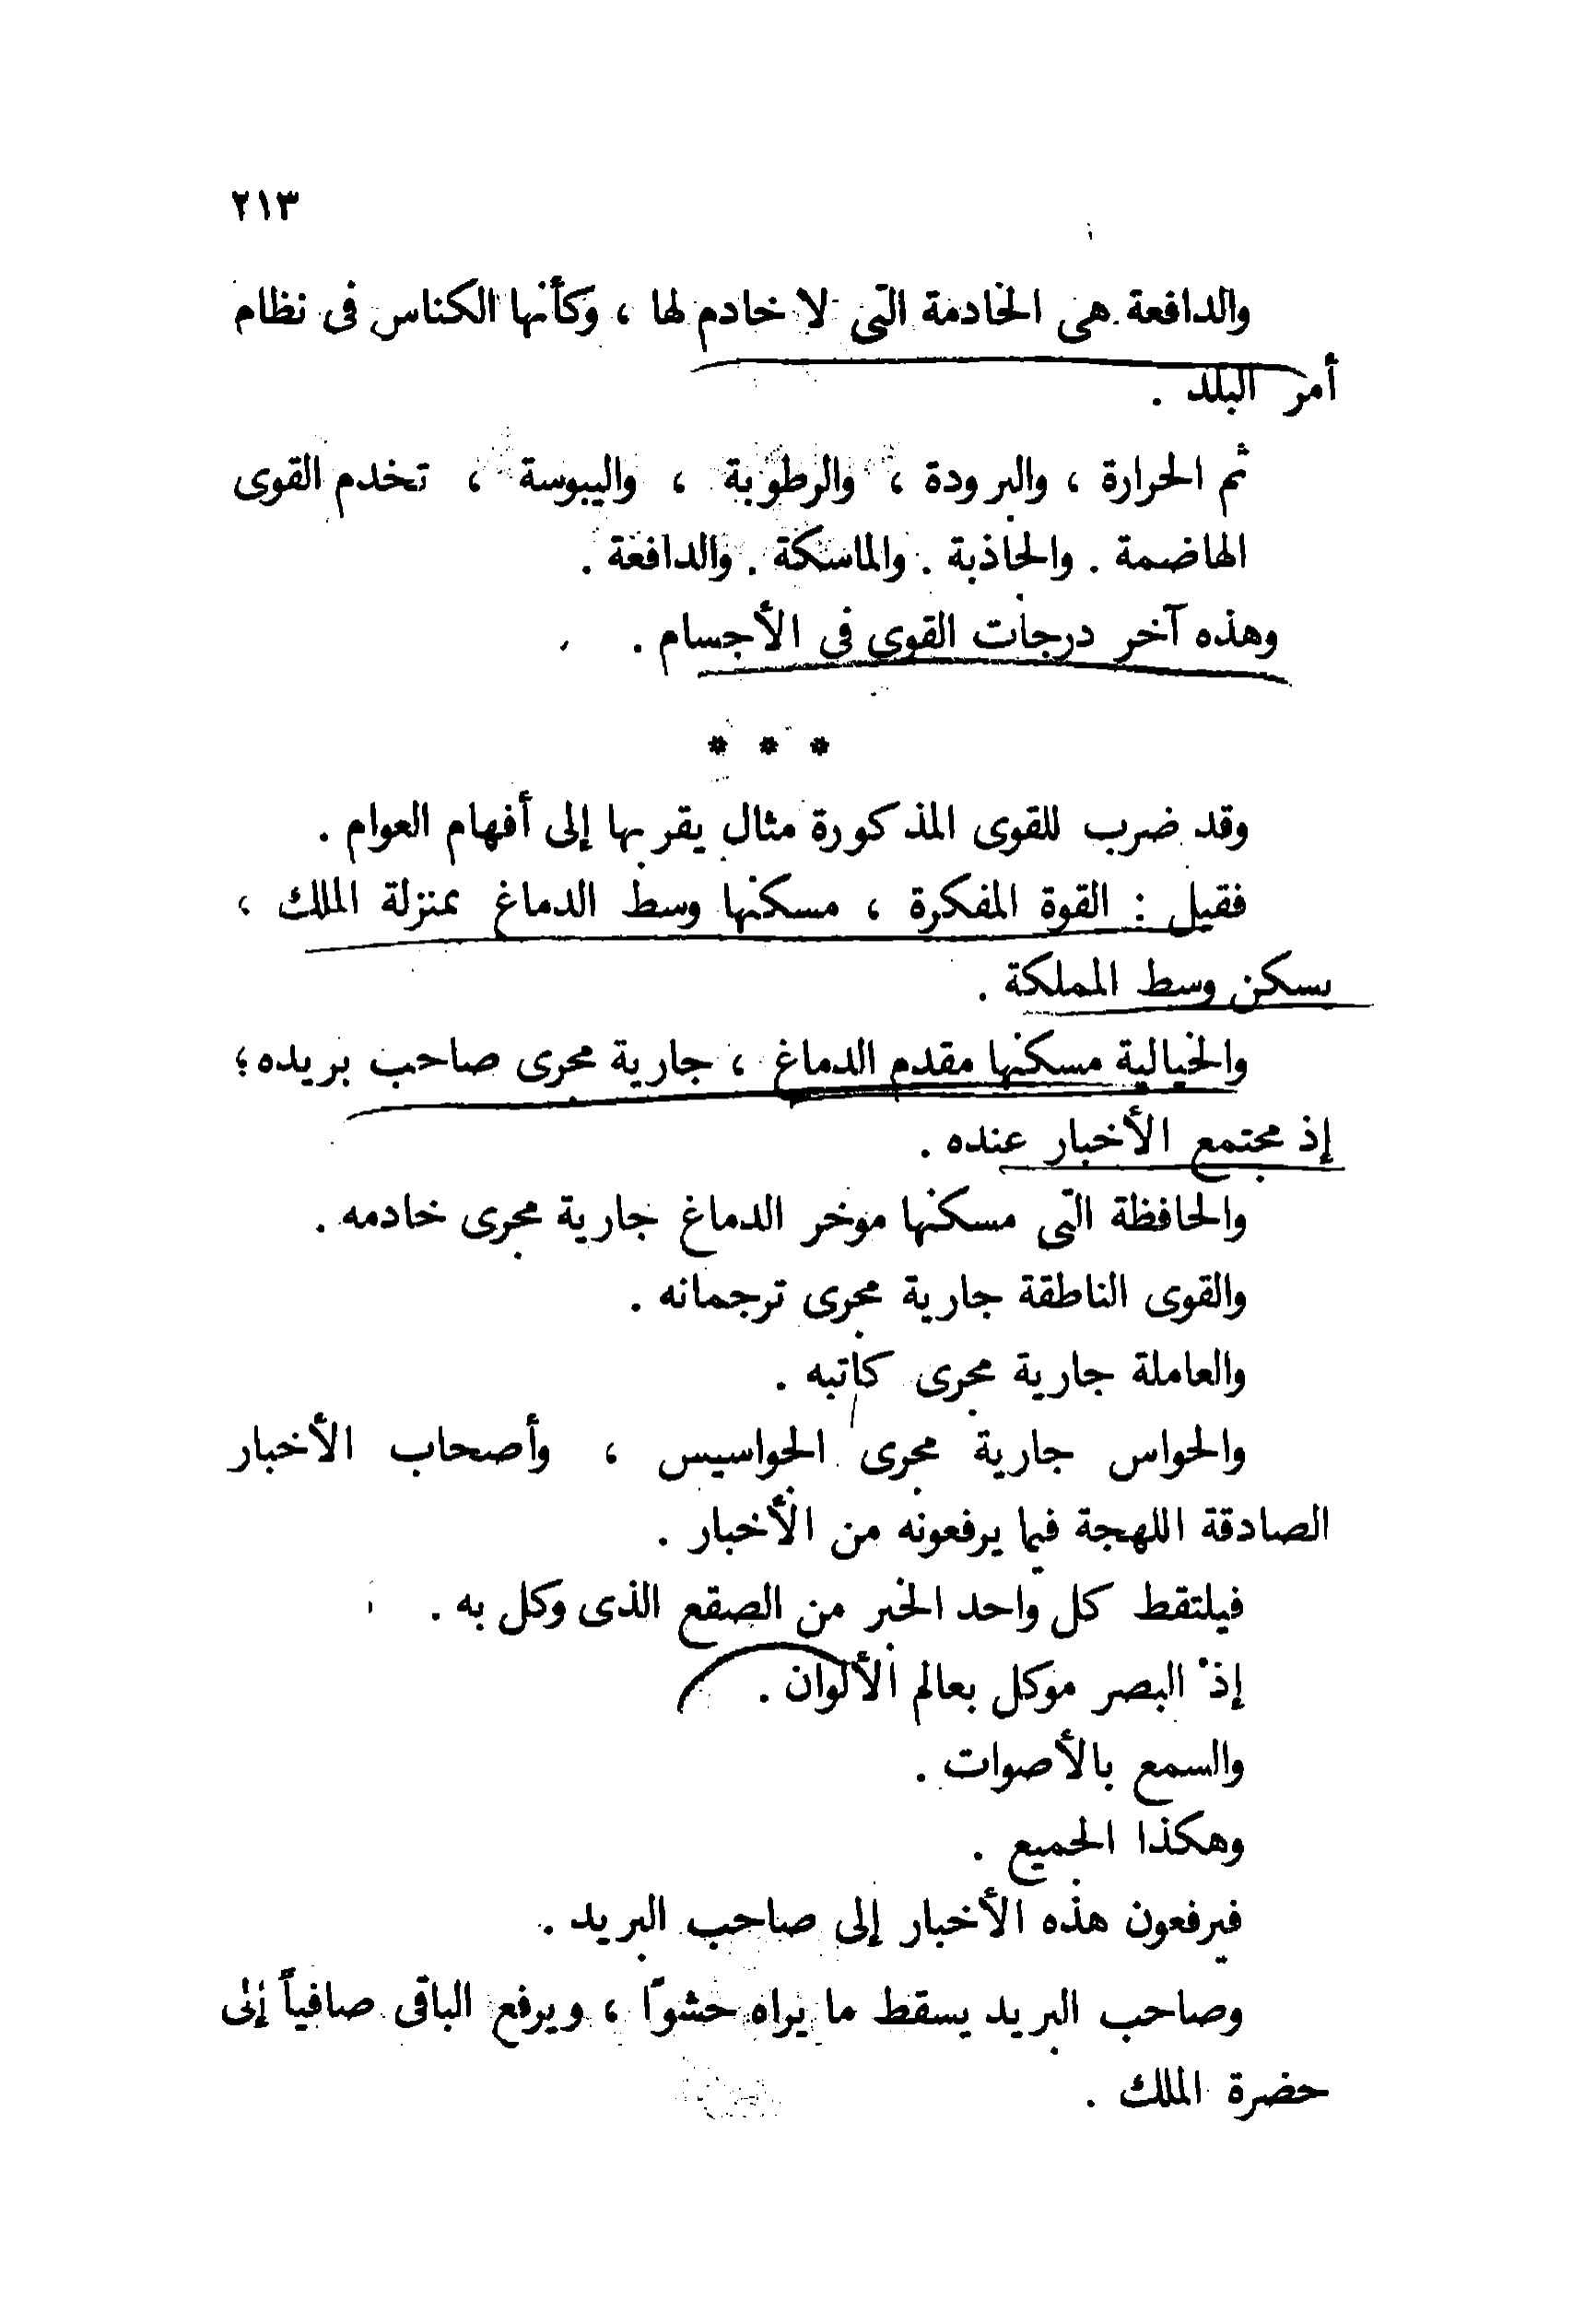 ٢١٣
والدافعة هى الخادمة التى لا خادم لها ، وكأنها الكناس فى نظام
أمر البلد .
ثم الحرارة ، والبرودة ، والرطوبة ، واليبوسة ، تخدم القوى
الهاضمة . والجاذبة . والماسكة . والدافعة .
وهذه آخر درجات القوى فى الأجسام .
* * *
وقد ضرب للقوى المذكورة مثال يقربها إلى أفهام العوام .
فقيل : القوة المفكرة ، مسكنها وسط الدماغ بمنزلة الملك ،
يسكن وسط المملكة .
والخيالية مسكنها مقدم الدماغ ، جارية مجرى صاحب بريده ؛
إذ مجتمع الأخبار عنده .
والحافظة التى مسكنها موخر الدماغ جارية مجرى خادمه .
والقوى الناطقة جارية مجرى ترجمانه .
والعاملة جارية مجرى كاتبه .
والحواس جارية مجرى الجواسيس ، وأصحاب الأخبار
الصادقة اللهجة فيما يرفعونه من الأخبار .
فيلتقط كل واحد الخبر من الصقع الذى وكل به .
إذ البصر موكل بعالم الألوان .
والسمع بالأصوات .
وهكذا الجميع .
فيرفعون هذه الأخبار إلى صاحب البريد .
وصاحب البريد يسقط ما يراه حشوًا ، ويرفع الباقى صافياً إلى
حضرة الملك .